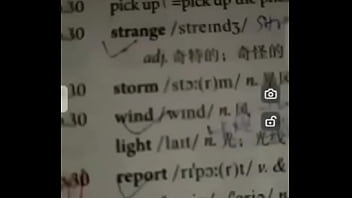 30 pick up (=pick up the
30 strange /streɪndʒ/
adj. 奇特的；奇怪的
30 storm /stɔ:(r)m/ n.
30 wind /wɪnd/ n. 风
light /laɪt/ n. 光；光线
30 report /rɪˈpɔ:(r)t/ v. &